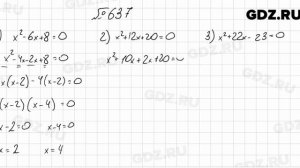 GDZ.RU
№637
) x²-6x+8=0 2) x²+12x+20=0 3) x²+22x-23=0
x²-4x-2x+8=0 x²+10x+2x+20=
x(x-2)-4(x-2)=0
(x-2)(x-4)=0
x-2=0 x-4=0
x=2 x=4